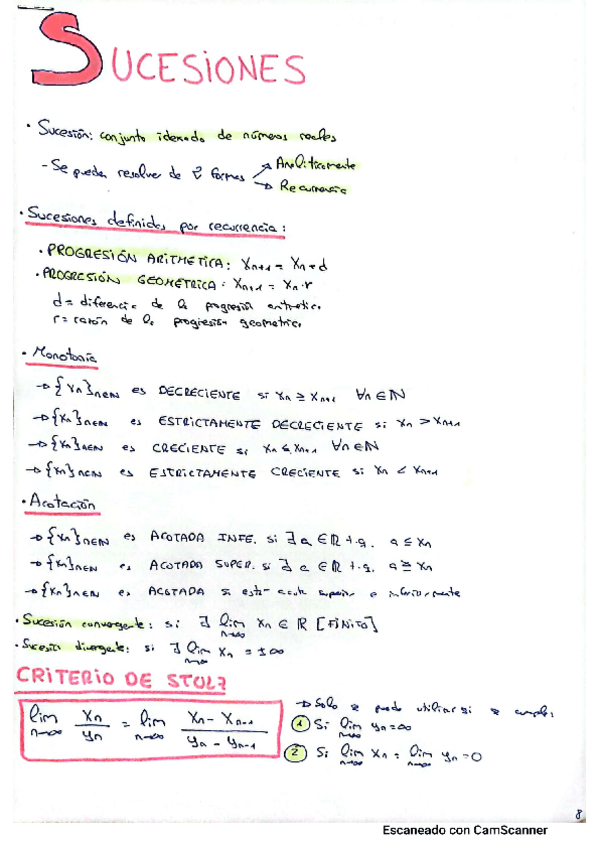 SUCESIONES
· Sucesión: conjunto indexado de números reales
- Se pueden resolver de 2 formas → Analíticamente
→ Recurrencia
· Sucesiones definidas por recurrencia:
· PROGRESIÓN ARITMÉTICA: Xn+1 = Xn + d
· PROGRESIÓN GEOMÉTRICA: Xn+1 = Xn · r
d = diferencia de la progresión aritmética
r = razón de la progresión geométrica
· Monotonía
→ {Xn}n∈ℕ es DECRECIENTE si Xn ≥ Xn+1 ∀n∈ℕ
→ {Xn}n∈ℕ es ESTRICTAMENTE DECRECIENTE si Xn > Xn+1
→ {Xn}n∈ℕ es CRECIENTE si Xn ≤ Xn+1 ∀n∈ℕ
→ {Xn}n∈ℕ es ESTRICTAMENTE CRECIENTE si Xn < Xn+1
· Acotación
→ {Xn}n∈ℕ es ACOTADA INFE. si ∃ a ∈ ℝ t.q. a ≤ Xn
→ {Xn}n∈ℕ es ACOTADA SUPER. si ∃ a ∈ ℝ t.q. a ≥ Xn
→ {Xn}n∈ℕ es ACOTADA si está superior e inferiormente
· Sucesión convergente: si ∃ lim n→∞ Xn ∈ ℝ [FINITO]
· Sucesión divergente: si ∃ lim n→∞ Xn = ±∞
CRITERIO DE STOLZ
lim n→∞ Xn/yn = lim n→∞ (Xn - Xn-1)/(yn - yn-1)
→ Solo se puede utilizar si se cumple:
① Si lim n→∞ yn = ∞
② Si lim n→∞ Xn = lim n→∞ yn = 0
8
Escaneado con CamScanner